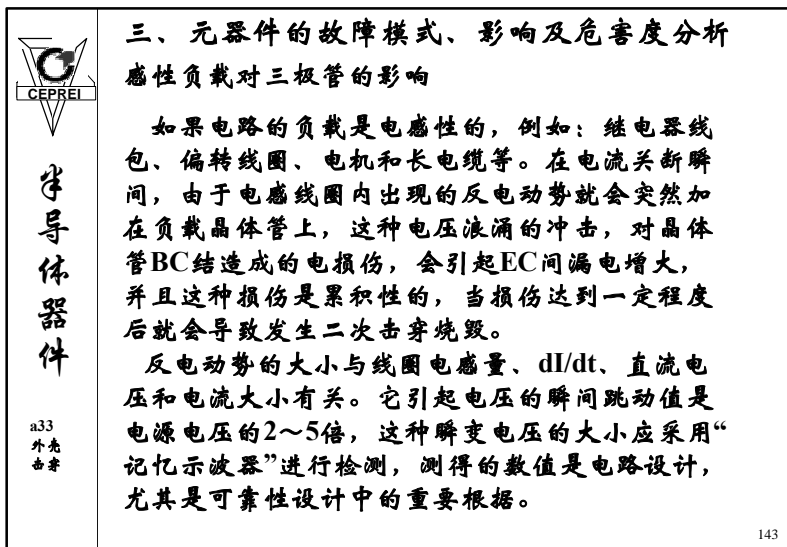 三、元器件的故障模式、影响及危害度分析
感性负载对三极管的影响
CEPREI
半导体器件
a33
外壳
击穿
如果电路的负载是电感性的，例如：继电器线
包、偏转线圈、电机和长电缆等。在电流关断瞬
间，由于电感线圈内出现的反电动势就会突然加
在负载晶体管上，这种电压浪涌的冲击，对晶体
管BC结造成的电损伤，会引起EC间漏电增大，
并且这种损伤是累积性的，当损伤达到一定程度
后就会导致发生二次击穿烧毁。
反电动势的大小与线圈电感量、dI/dt、直流电
压和电流大小有关。它引起电压的瞬间跳动值是
电源电压的2～5倍，这种瞬变电压的大小应采用“
记忆示波器”进行检测，测得的数值是电路设计，
尤其是可靠性设计中的重要根据。
143